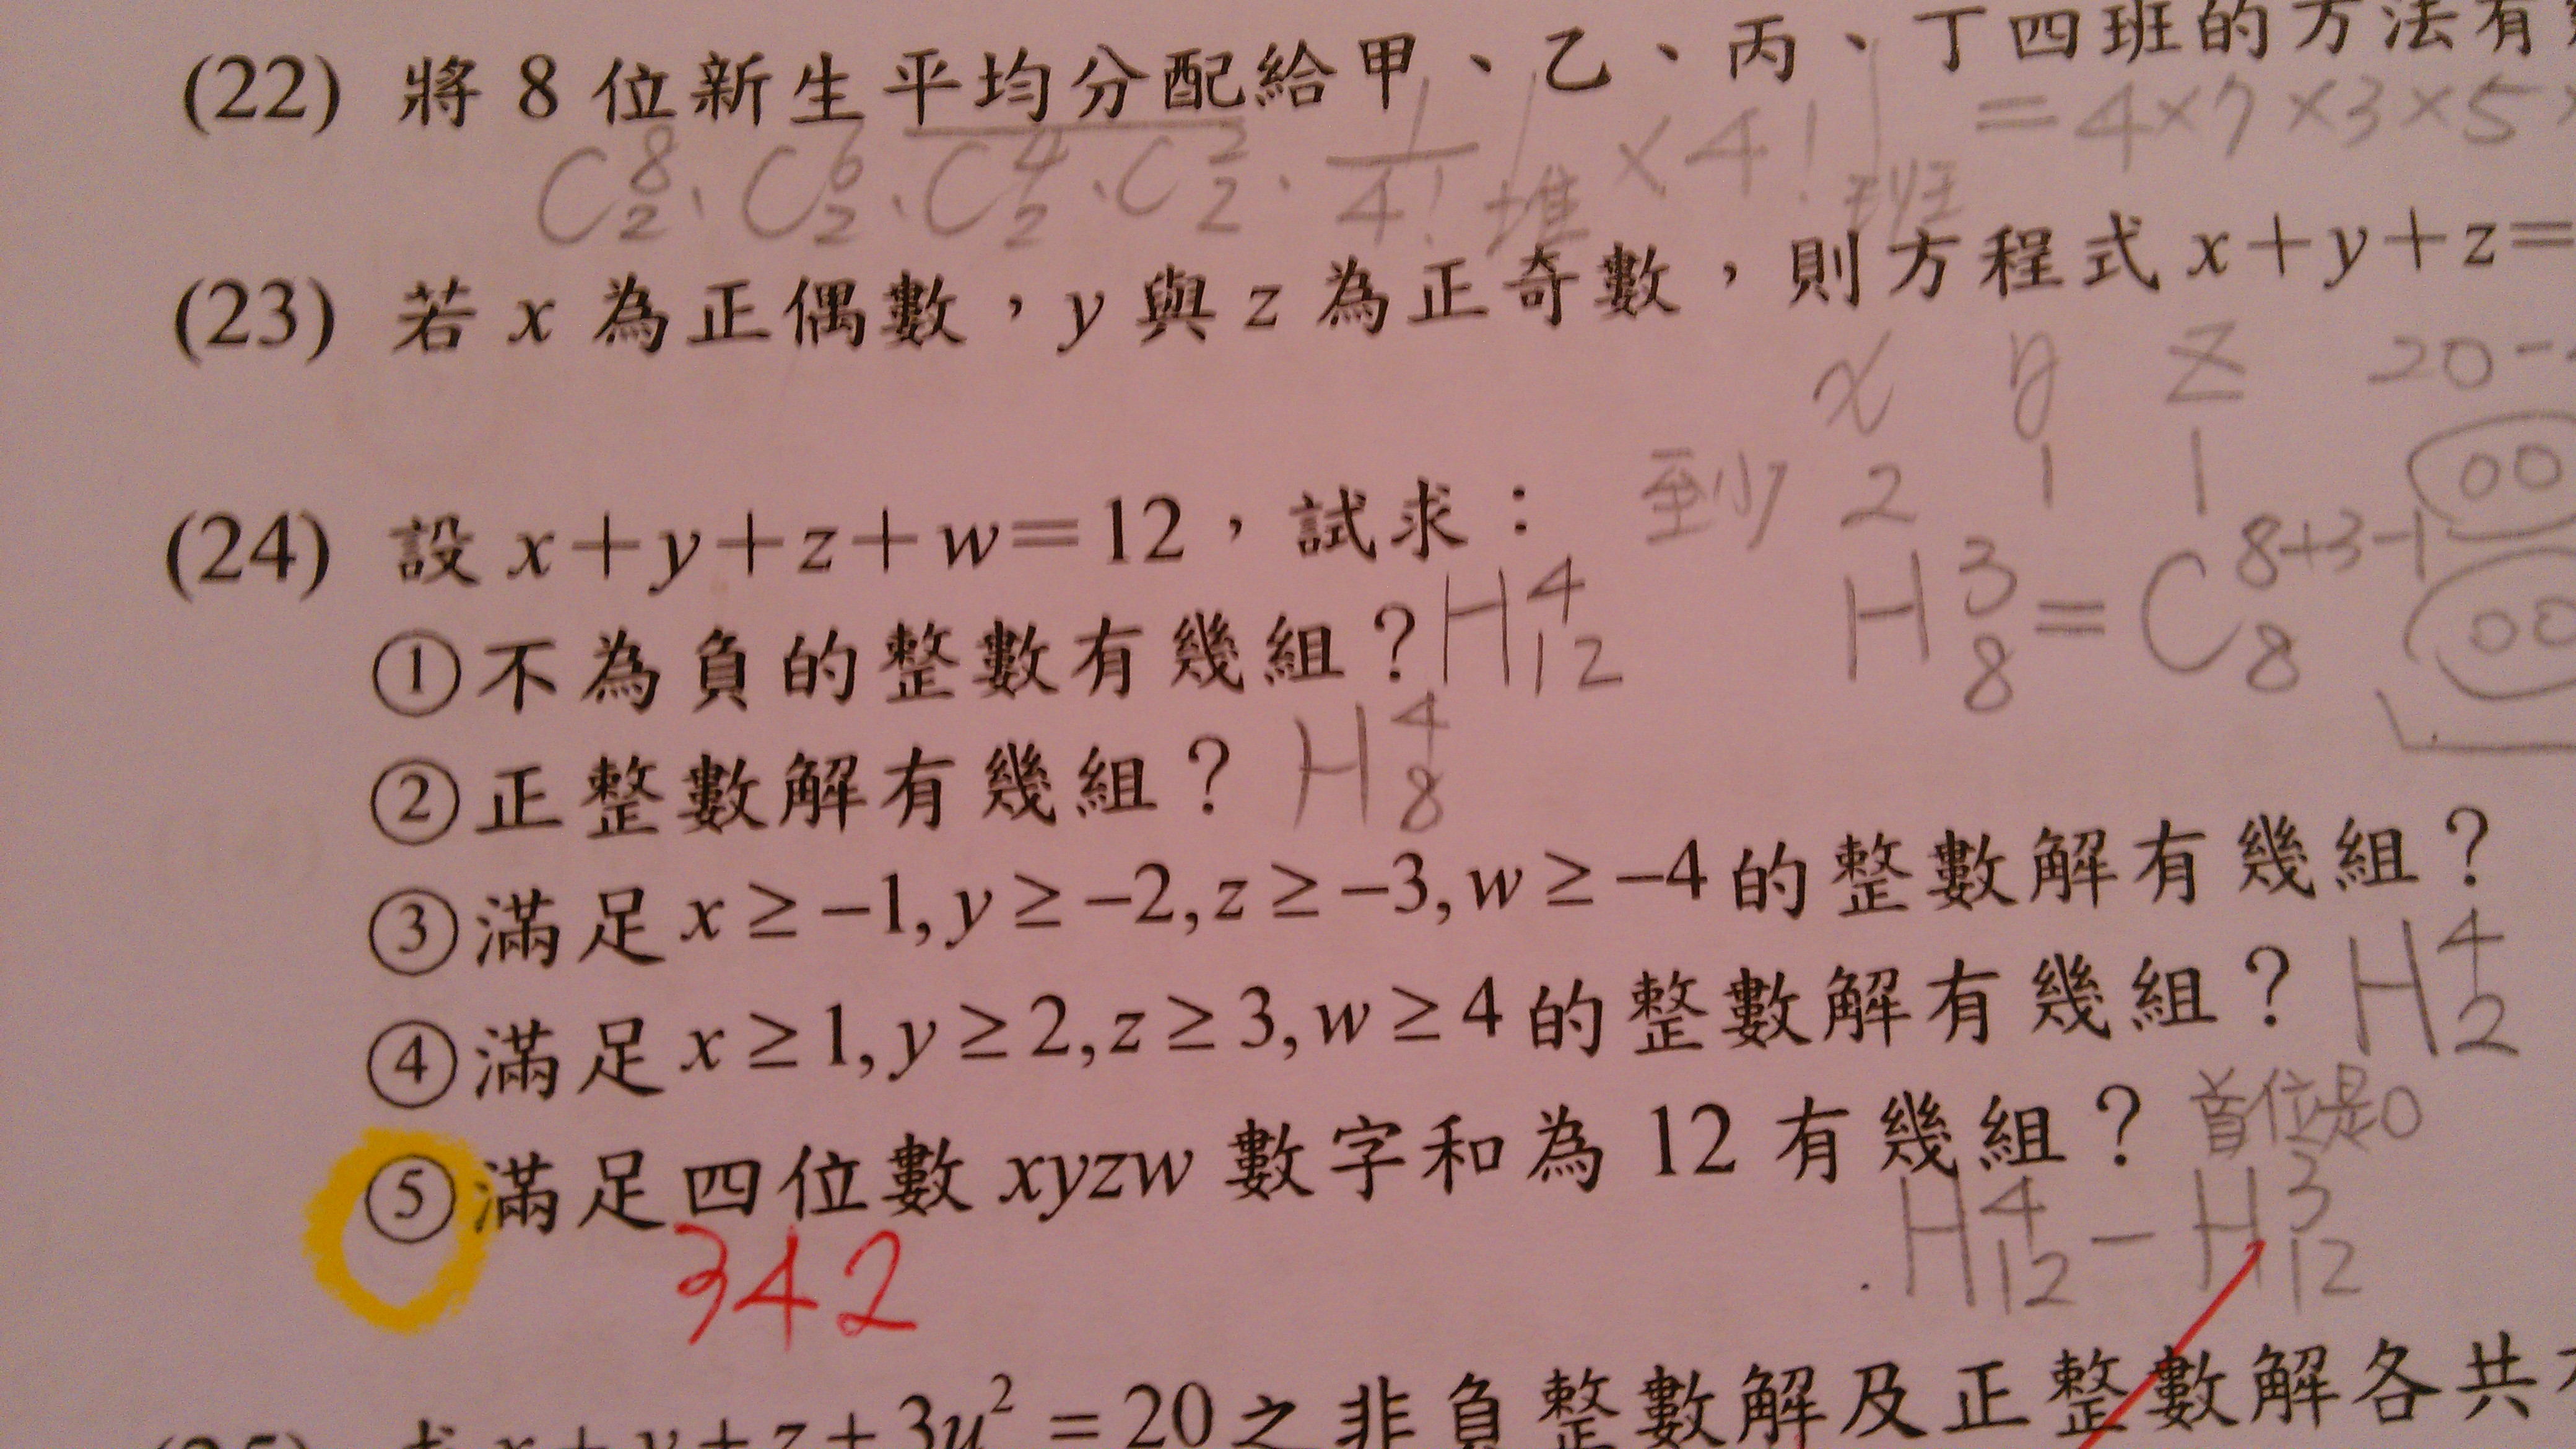 (22) 將 8 位新生平均分配給甲、乙、丙、丁四班的方法有
C⁸₂、C⁶₂、C⁴₂、C²₂．1/4! 堆 ×4! 班 =4×7×3×5
(23) 若 x 為正偶數，y 與 z 為正奇數，則方程式 x+y+z=
x y z 20-
至少 2 1 1
H³₈=C⁸⁺³⁻¹₈
(24) 設 x+y+z+w=12，試求：
①不為負的整數有幾組？H⁴₁₂
②正整數解有幾組？ H⁴₈
③滿足 x≥−1, y≥−2, z≥−3, w≥−4 的整數解有幾組？
④滿足 x≥1, y≥2, z≥3, w≥4 的整數解有幾組？ H⁴₂
⑤滿足四位數 xyzw 數字和為 12 有幾組？ 首位是0
342 H⁴₁₂−H³₁₂
x+y+z+3u²=20之非負整數解及正整數解各共